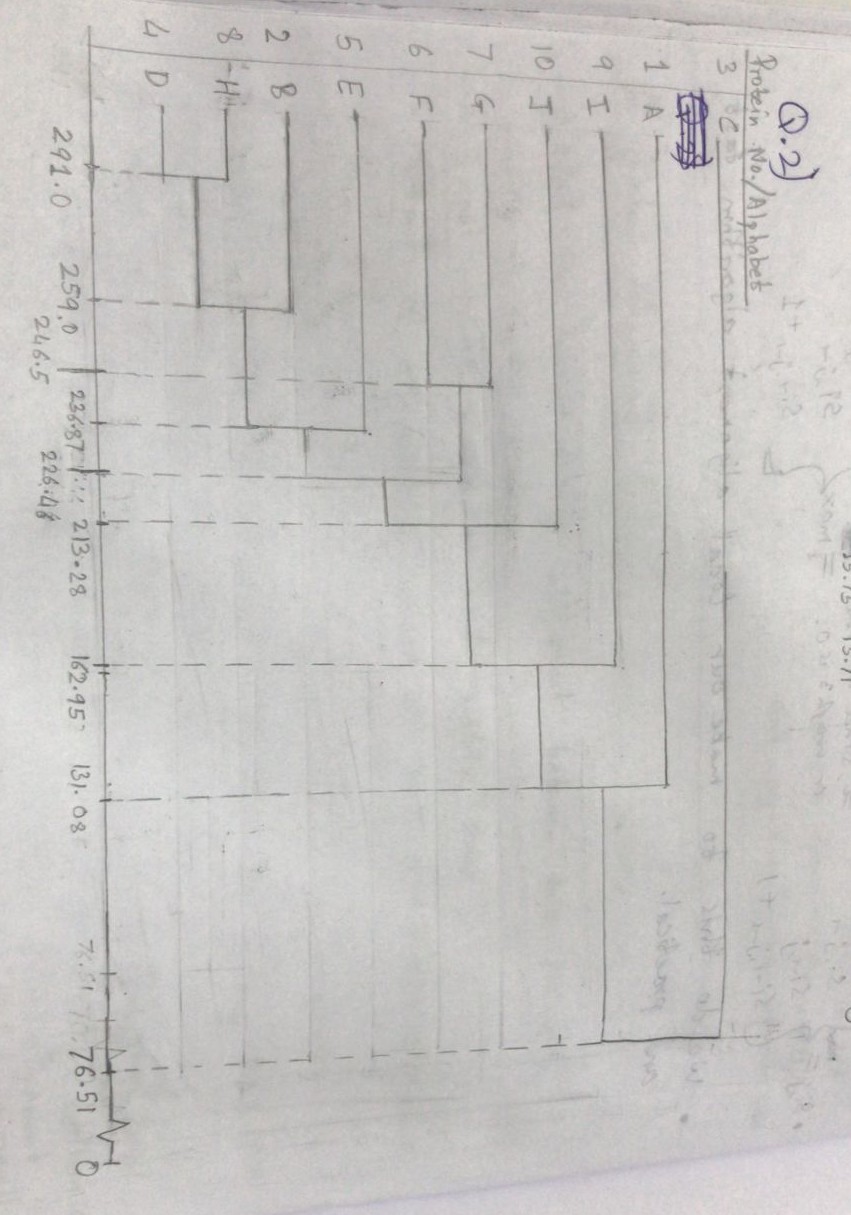 Q.2)
Protein No./Alphabet
3 C
Q.2)
1 A
9 I
10 J
7 G
6 F
5 E
2 B
8 H
4 D
291.0 259.0 246.5 236.87 226.48 213.28 162.95 131.08 76.51 76.51 0